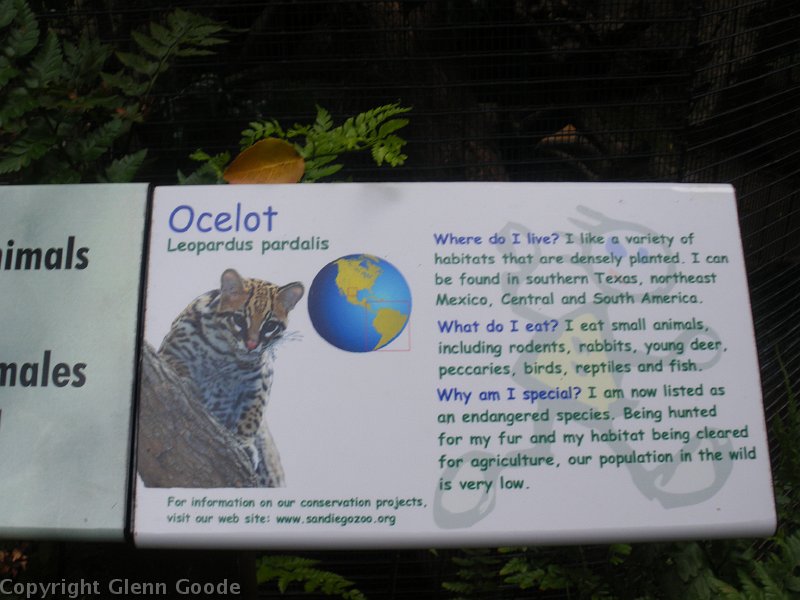 nimals
males
Ocelot
Leopardus pardalis
Where do I live? I like a variety of
habitats that are densely planted. I can
be found in southern Texas, northeast
Mexico, Central and South America.
What do I eat? I eat small animals,
including rodents, rabbits, young deer,
peccaries, birds, reptiles and fish.
Why am I special? I am now listed as
an endangered species. Being hunted
for my fur and my habitat being cleared
for agriculture, our population in the wild
is very low.
For information on our conservation projects,
visit our web site: www.sandiegozoo.org
Copyright Glenn Goode